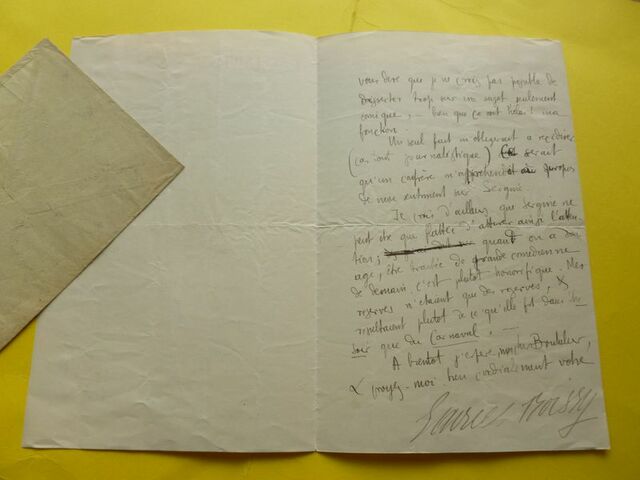 vous dire que je ne crois pas possible de
disserter trop sur un sujet seulement
comique, — bien que ça soit hélas ! ma
fonction.
Un seul fait m'obligerait à
(car tout journalistique) ce serait
qu'un confrère m' à propos
de mon sentiment sur Serginé.
Je crois d'ailleurs que Serginé ne
peut être que flattée d'attirer ainsi l'atten-
tion, quand on a son
âge, être traitée de grande comédienne
de demain c'est plutôt honorifique. Mes
réserves n'étaient que des réserves, &
résultaient plutôt de ce qu'elle fit dans
que du Carnaval.
A bientôt j'espère, mon
& croyez-moi bien cordialement votre
Boissy